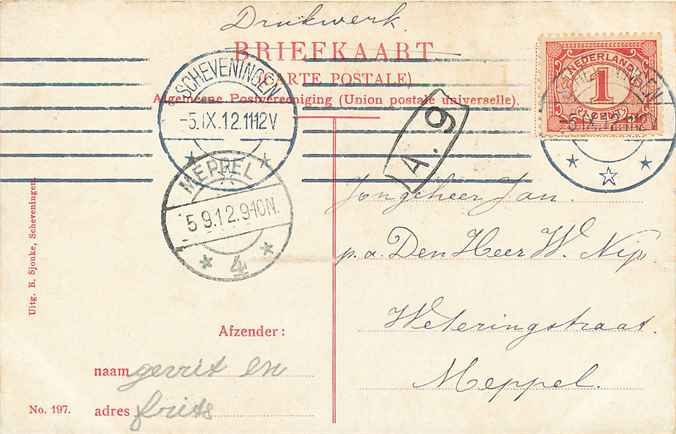 Drukwerk.
BRIEFKAART
(CARTE POSTALE)
Algemeene Postvereeniging (Union postale universelle).
SCHEVENINGEN
-5.IX.12.1112V
NEDERLAND
1
CENT
MEPPEL
5 9.12.9-10N.
4
A.9
Jongeheer Jan.
p.a. Den Heer W. Nip
Weteringstraat.
Meppel.
Uitg. B. Sjouke, Scheveningen.
Afzender:
naam gerrit en
No. 197. adres frits